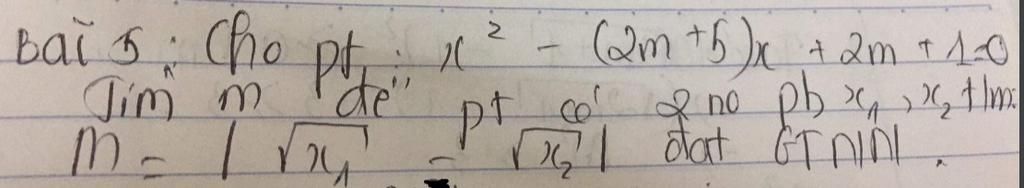 Bài 5: Cho pt: x² - (2m+5)x + 2m + 1=0
Tìm m để pt có 2 no pb x₁, x₂ t/m:
M = | √x₁ - √x₂ | đạt GTNN.